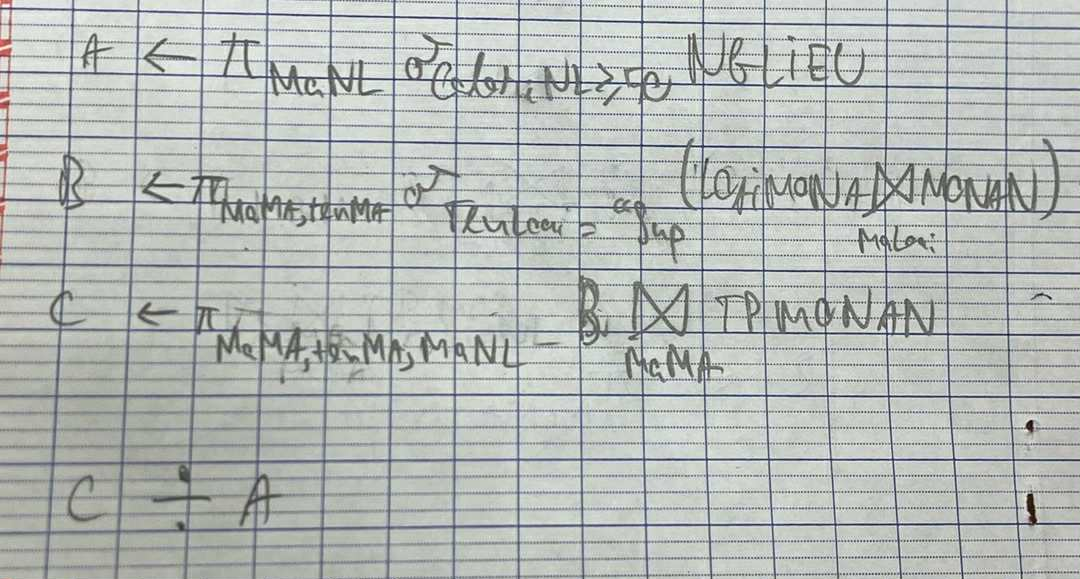 A ← π MaNL σ CaloriNL≥50 NGLIEU
B ← π MaMA, tenMA σ Tenloai = "Súp (LOAIMONAN ⋈ MONAN) MaLoai
C ← π MaMA, tenMA, MaNL B ⋈ TPMONAN MaMA
C ÷ A